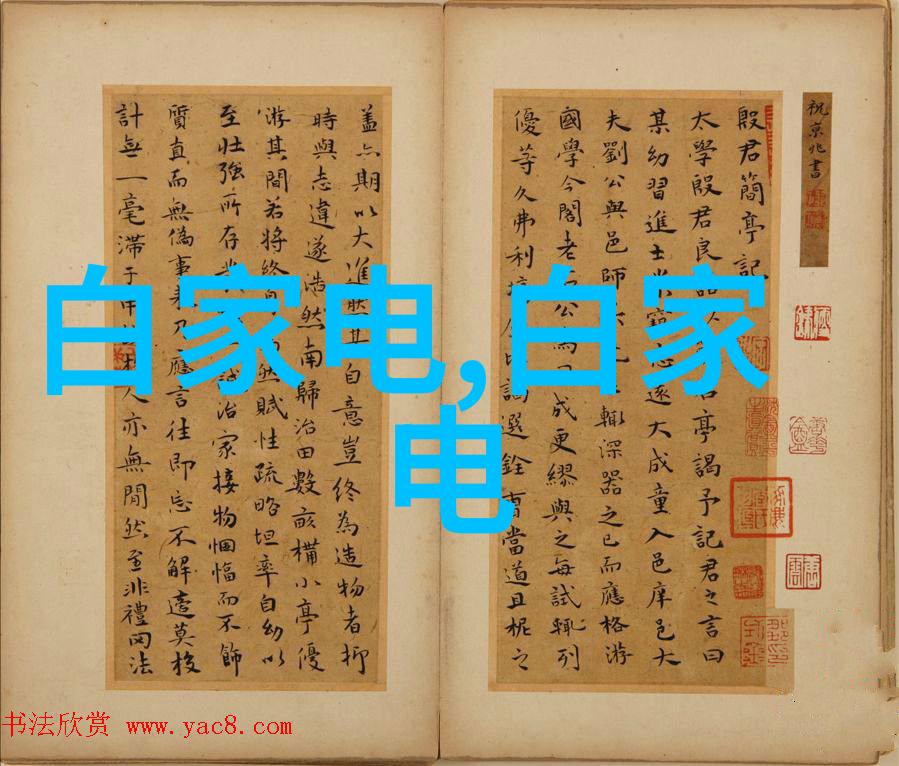 白家电,白家
电
祝京兆書
殷君簡亭記
太學殷君良以君亭謁予記君之言曰
某幼習進士業竊志遠大成童入邑庠邑大
夫劉公與邑師輙深器之已而應格游
國學今閣老公為司成更繆與之每試輒列
優等久弗利謁選銓曹當道且柅之
蓋亦期以大進自意豈終為造物者抑
時與志違遂浩然南歸治田數畝構小亭優
游其間若將終身然賦性疏略坦率自幼以
至壯強所存治家接物悃愊而不飾
質直而無偽事來乃應言往即忘不解莫校
計無一毫滯于中人亦無閒然至非禮罔法
书法欣赏 www.yac8.com